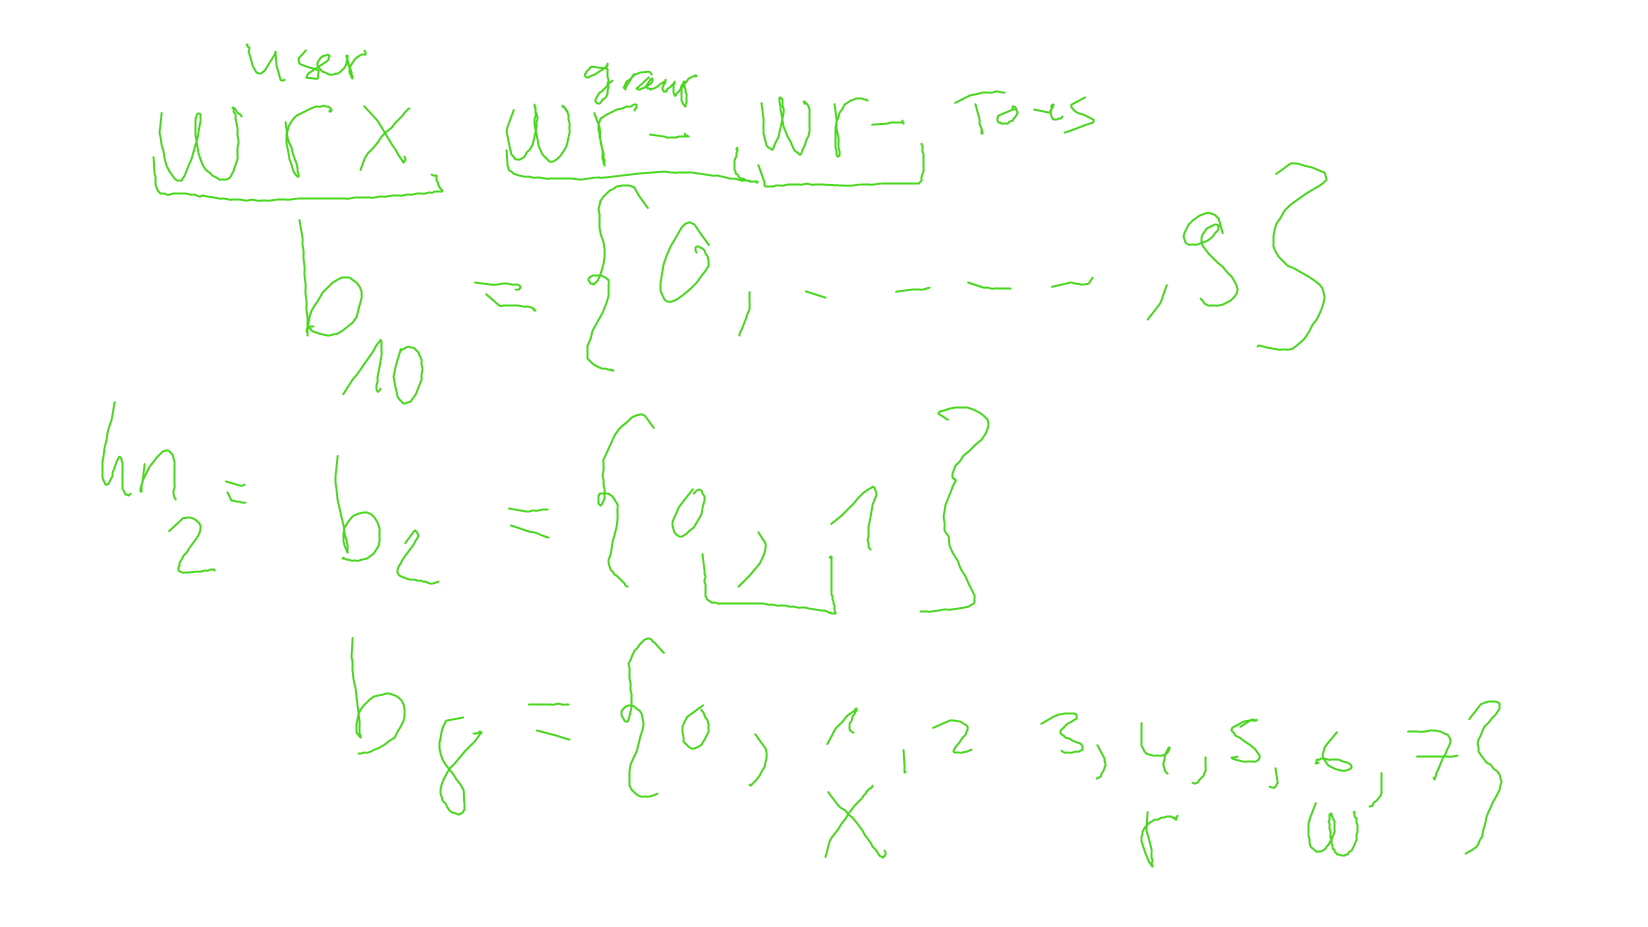 user group
wrx wr- wr- Tous
b10 = {0, - - - - , 9}
hn2 = b2 = {0, 1}
b8 = {0, 1, 2 3, 4, 5, 6, 7}
x r w